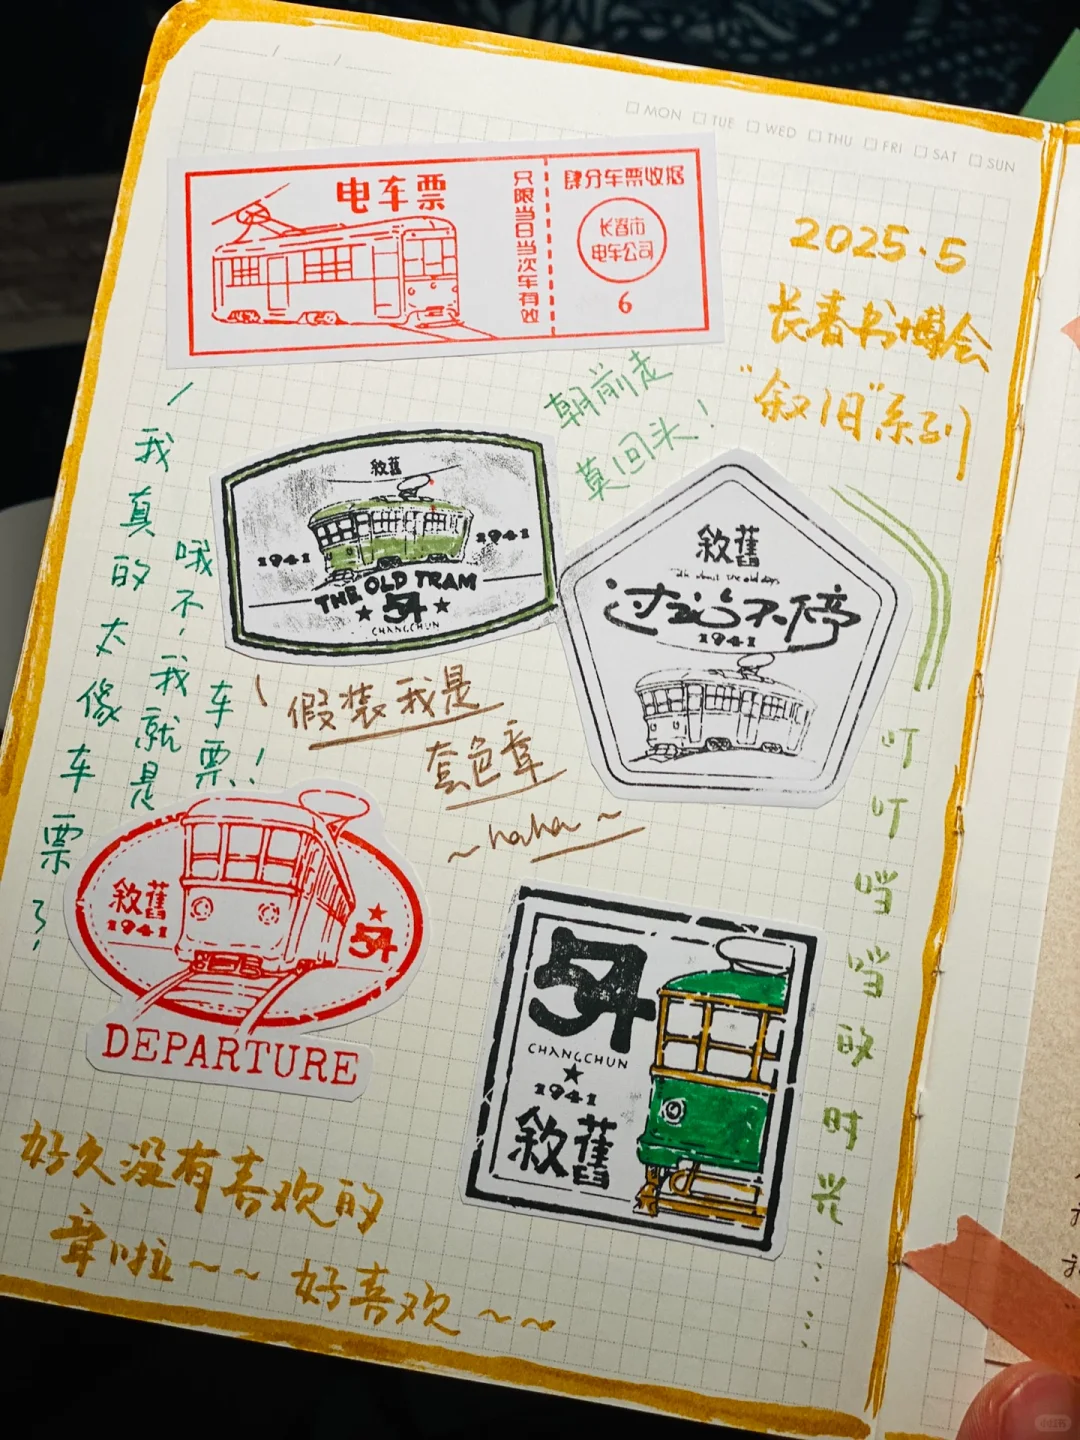 MON TUE WED THU FRI SAT SUN
电车票
只限当日当次车有效
肆分车票收据
长春市
电车公司
6
2025·5
长春书博会
“叙旧”系列
朝前走
莫回头!
我真的太像车票了,
哦不,我就是
车票!
敘舊
1941 1941
THE OLD TRAM
54
CHANGCHUN
敘舊
Talk about the old days
过站不停
1941
假装我是
套色章
~haha~
叮叮当当的时光……
敘舊
1941
54
DEPARTURE
54
CHANGCHUN
1941
敘舊
好久没有喜欢的
章啦~~好喜欢~~
小红书